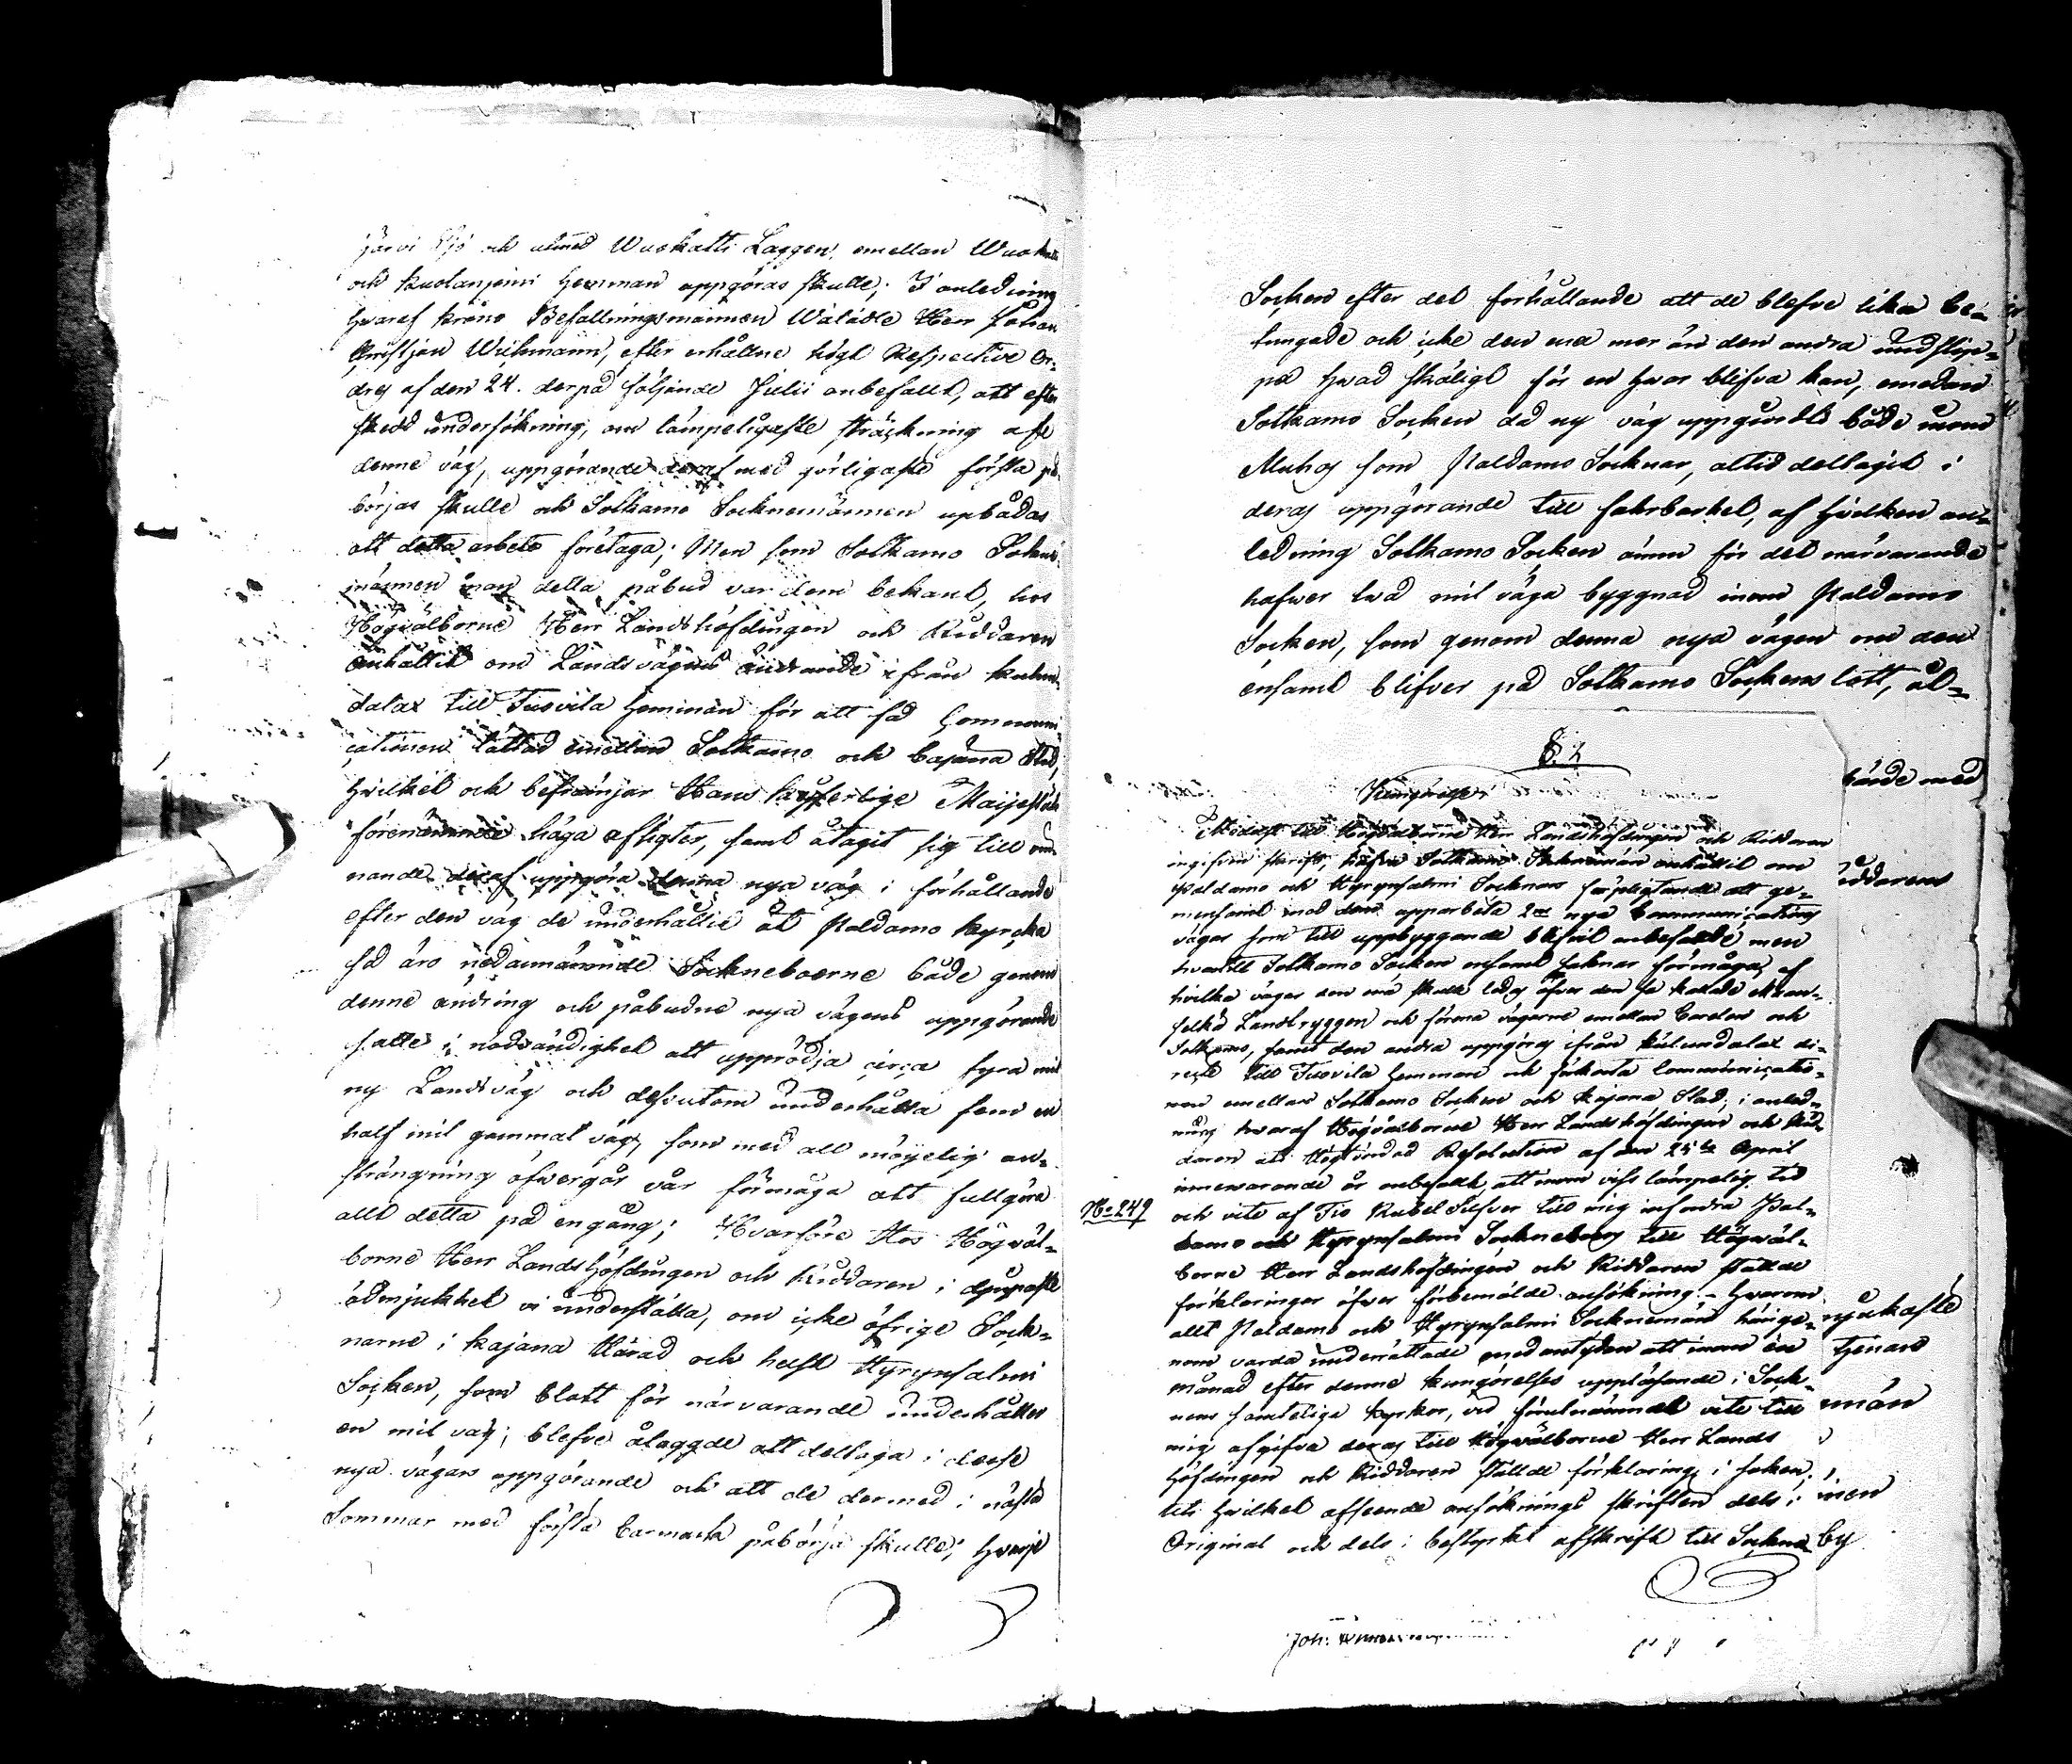 järvi Sjö och utmed Wuokatti Laggen, emellan Wuokatti
och Kuolanjemi Hemman uppgöras skulle; I anledning
hvaraf Krono Befallningsmannen Wälädle Herr Johan
Christjan Wichmann, efter erhållne högt Respective Or-
dres af den 24. derpå följande Julii anbefallt, att efter
skedd undersökning, om lämpeligaste sträckning af
denne väg, uppgörande deraf med görligaste första på-
börjas skulle och Sotkamo Socknemännen upbådas
att detta arbete företaga; Men som Sotkamo Sokne-
männen innan detta påbud var dem bekant, hos
Högvälborne Herr Landshöfdingen och Riddaren
anhållit om Landsvägens ändrande ifrån
till Tusvila Hemman för att få Communi-
cationen lättad emellan Sotkamo och Cajana Stad,
hvilket och befrämjar Hans Kejserlige Maijestäts
förenämnde höga afsigter, samt åtagit sig till om-
nande deraf uppgöra denna nya väg i förhållande
efter den väg de underhållit åt Paldamo Kyrcka
så äro nedannämnde Sockneboerne både genom
denne ändring och påbudne nya vägens uppgörande
satte i nödvändighet att upprödja circa fyra mil
ny Landsväg och dessutom underhålla fem en
half mil gammal väg, som med all möijelig an-
strängning öfwergår vår förmåga att fullgöra
allt detta på en gång; Hvarföre Hos Högwäl-
borne Herr Landshöfdingen och Riddaren i djupaste
ödmjukhet vi underställa, om icke öfrige Sock-
narne i Kajana Härad och helst Hyrynsalmi
Socken, som blott för närvarande underhåller
en mil väg, blefve ålaggde att deltaga i desse
nya vägars uppgörande och att de dermed i nästa
Sommar med första barmark påbörja skulle; hvarje
Socken efter det förhållande att de blefve lika be-
tungade och icke den ena mer än den andra
på hvad skäligt för en hvar blifva kan, emedan
Sotkamo Socken då ny väg uppgjordts både inom
Muhos som Paldamo Socknar, altid deltagit i
deras uppgörande till fahrbarhet, af hvilken an-
ledning Sotkamo Socken ännu för det närvarande
hafwer två mil väga byggnad inom Paldamo
Socken, som genom denna nya vägen om den
ensamt blifver på Sotkamo Sockens lott, åt-
Kungörelse
Ödmjukt till Högvälborne Herr Landshöfdingen och Riddaren
ingifven skrift, hafva Sotkamo Socknemän anhållit om
Paldamo och Hyrynsalmi Socknars förpligtande att ge-
mensamt med dem upparbeta 2ne nya Communications
vägar som till uppbyggande blifvit anbefallde men
hvartill Sotkamo Socken ensamt saknar förmåga, af
hvilka vägar den ena skulle ledas öfver den så kallade Maan-
selkä Landtryggen och förena vägarne emellan Carelen och
Sotkamo, samt den andra uppgöras ifrån di-
recte till Tusvila Hemman och förkorta Communicatio-
nen emellan Sotkamo Socken och Kajana Stad; i anled-
ning hvaraf Högvälborne Herr Landshöfdingen och Rid-
daren uti Resolution af den 25te April
innewarande år anbefallt, att inom viss lämpelig tid
N:o 249 och vite af Tio Rubel Silfver till mig infordra Pal-
damo och Hyrynsalmi Sockneboers till Högwäl-
borne Herr Landshöfdingen och Riddaren ställde
förklaringar öfwer förbemälde ansökning. - Hvarom
allt Paldamo och Hyrynsalmi Socknemän härige-
nom varda underrättade med antydan att inom en
Månad efter denne kungörelses uppläsande i Sock-
nens samteliga kyrkor, vid förutnämndt vite till
mig afgifva deras till Högwälborne Herr Lands
Höfdingen och Riddaren ställde förklaring i saken;
till hvilket afseende ansöknings skriften dels i
Original och dels i bestyrkt afskrift till Sockne
bärde med
iddarens
mjukaste
tjenare
män
men
by
Joh: